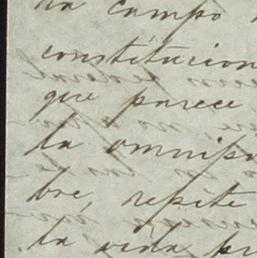 campo
constitucion
que parece
la omnipo
bre, repite
la vida pr